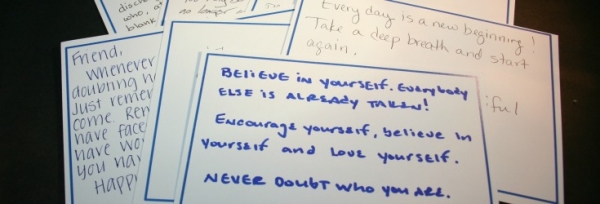 disch
who, a
blank
no longer
Every day is a new beginning!
Take a deep breath and start
again.
iful
Friend,
Whenever
doubting
Just remem
come. Rem
have face
have wo
you hav
Happ
BELIEVE IN YOURSELF. EVERYBODY
ELSE IS ALREADY TAKEN!
Encourage yourself, believe in
yourself and love yourself.
NEVER DOUBT WHO YOU ARE.